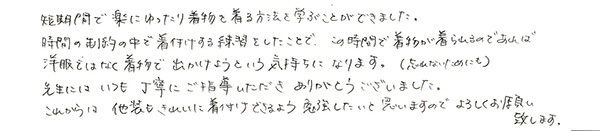 短期間で楽にゆったり着物を着る方法を学ぶことができました。
時間の制約の中で着付けする練習をしたことで、この時間で着物が着られるのであれば
洋服ではなく着物で出かけようという気持ちになります。(忘れないためにも)
先生にはいつも丁寧にご指導いただきありがとうございました。
これからは他装もきれいに着付けできるよう勉強したいと思いますのでよろしくお願い
致します。